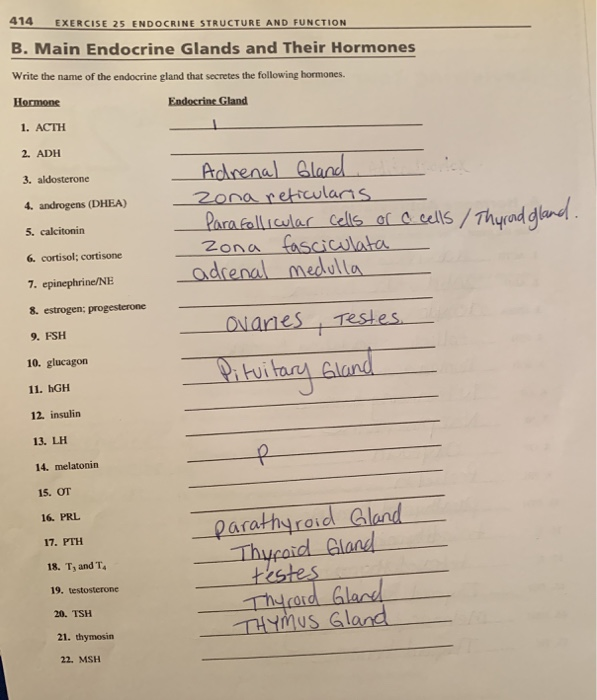 414 EXERCISE 25 ENDOCRINE STRUCTURE AND FUNCTION
B. Main Endocrine Glands and Their Hormones
Write the name of the endocrine gland that secretes the following hormones.
Hormone Endocrine Gland
1. ACTH
2. ADH
3. aldosterone Adrenal Gland
4. androgens (DHEA) Zona reticularis
5. calcitonin Parafollicular cells or C cells / Thyroid gland.
6. cortisol; cortisone Zona fasciculata
7. epinephrine/NE adrenal medulla
8. estrogen; progesterone
9. FSH ovaries, Testes.
10. glucagon
11. hGH Pituitary Gland
12. insulin
13. LH
14. melatonin P
15. OT
16. PRL
17. PTH parathyroid Gland
18. T₃ and T₄ Thyroid Gland
19. testosterone testes
20. TSH Thyroid Gland
21. thymosin THYMUS Gland
22. MSH